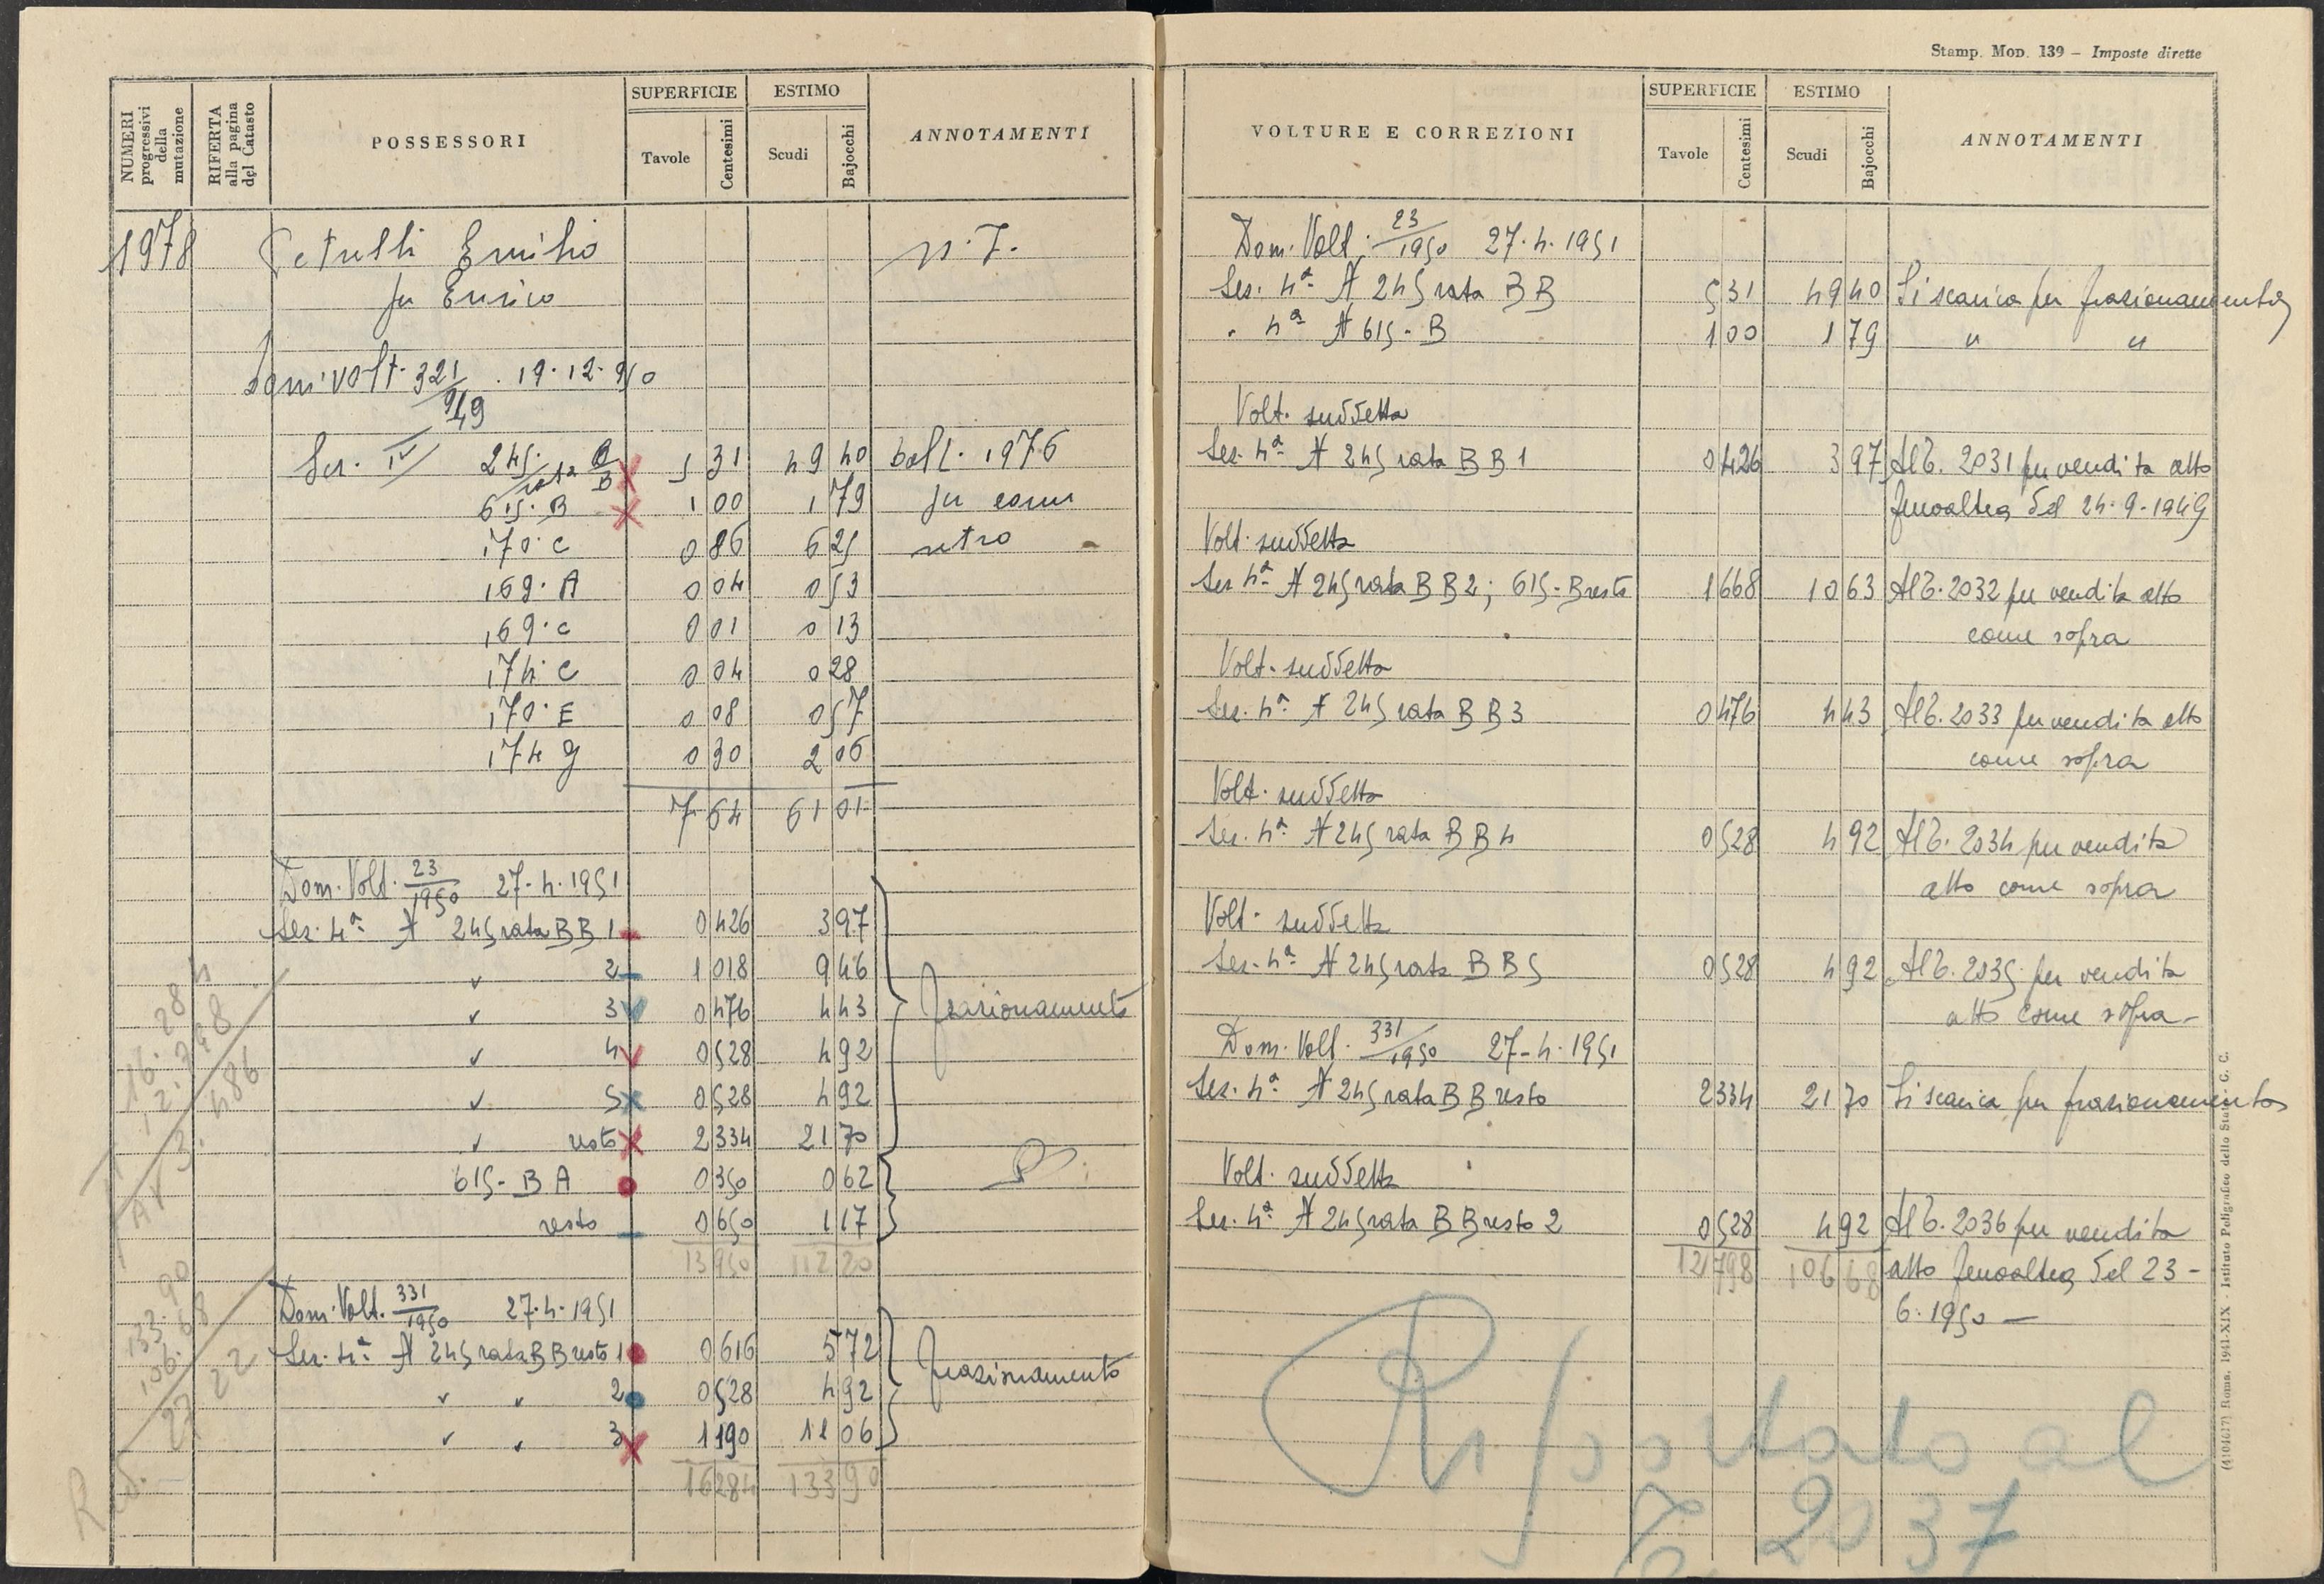 NUMERI progressivi della mutazione
RIFERTA alla pagina del Catasto
POSSESSORI
SUPERFICIE
Tavole
Centesimi
ESTIMO
Scudi
Bajocchi
ANNOTAMENTI
1978 Petrelli Emilio n.7.
fu Enrico
Dom. Volt. 321/949 . 19.12.950
Sez. IV 245 rata B/B 5 31 49 40 dall. 1976
615. B 1 00 1 79 fu come
170. C 0 86 6 25 retro
169. A 0 04 0 53
169. C 0 01 0 13
174. C 0 04 0 28
170. E 0 08 0 57
174 G 0 30 2 06
7 64 61 01
Dom. Volt. 23/1950 27.4.1951
Sez. 4ª A 245 rata B B 1 0 426 3 97
2 1 018 9 46
3 0 476 4 43 frazionamento
4 0 528 4 92
5 0 528 4 92
resto 2 334 21 70
615 - B A 0 350 0 62
resto 0 650 1 17
13 950 112 20
Dom. Volt. 331/1950 27.4.1951
Sez. 4ª A 245 rata B B resto 1 0 616 5 72 frazionamento
2 0 528 4 92
3 1 190 11 06
16 284 133 90
16.284
12.798
3.486
133.90
106.68
27 22
Stamp. Mod. 139 – Imposte dirette
VOLTURE E CORREZIONI
SUPERFICIE
Tavole
Centesimi
ESTIMO
Scudi
Bajocchi
ANNOTAMENTI
Dom. Volt. 23/1950 27.4.1951
Sez. 4ª A 245 rata B B 5 31 49 40 Si scarica per frazionamento
" 4ª A 615 - B 1 00 1 79 " "
Volt. suddetta
Sez. 4ª A 245 rata B B 1 0 426 3 97 All. 2031 per vendita atto
Fenoaltea del 24.9.1949
Volt. suddetta
Sez. 4ª A 245 rata B B 2; 615 - B resto 1 668 10 63 All. 2032 per vendita atto
come sopra
Volt. suddetta
Sez. 4ª A 245 rata B B 3 0 476 4 43 All. 2033 per vendita atto
come sopra
Volt. suddetta
Sez. 4ª A 245 rata B B 4 0 528 4 92 All. 2034 per vendita
atto come sopra
Volt. suddetta
Sez. 4ª A 245 rata B B 5 0 528 4 92 All. 2035 per vendita
atto come sopra -
Dom. Volt. 331/1950 27-4-1951
Sez. 4ª A 245 rata B B resto 2 334 21 70 Si scarica per frazionamento
Volt. suddetta
Sez. 4ª A 245 rata B B resto 2 0 528 4 92 All. 2036 per vendita
12 798 106 68 atto Fenoaltea del 23-
6.1950 —
Riportato al
2037
(4104617) Roma, 1941-XIX - Istituto Poligrafico dello Stato G. C.